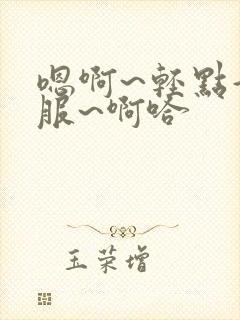 嗯啊~轻點~
服~啊哈
王荣增